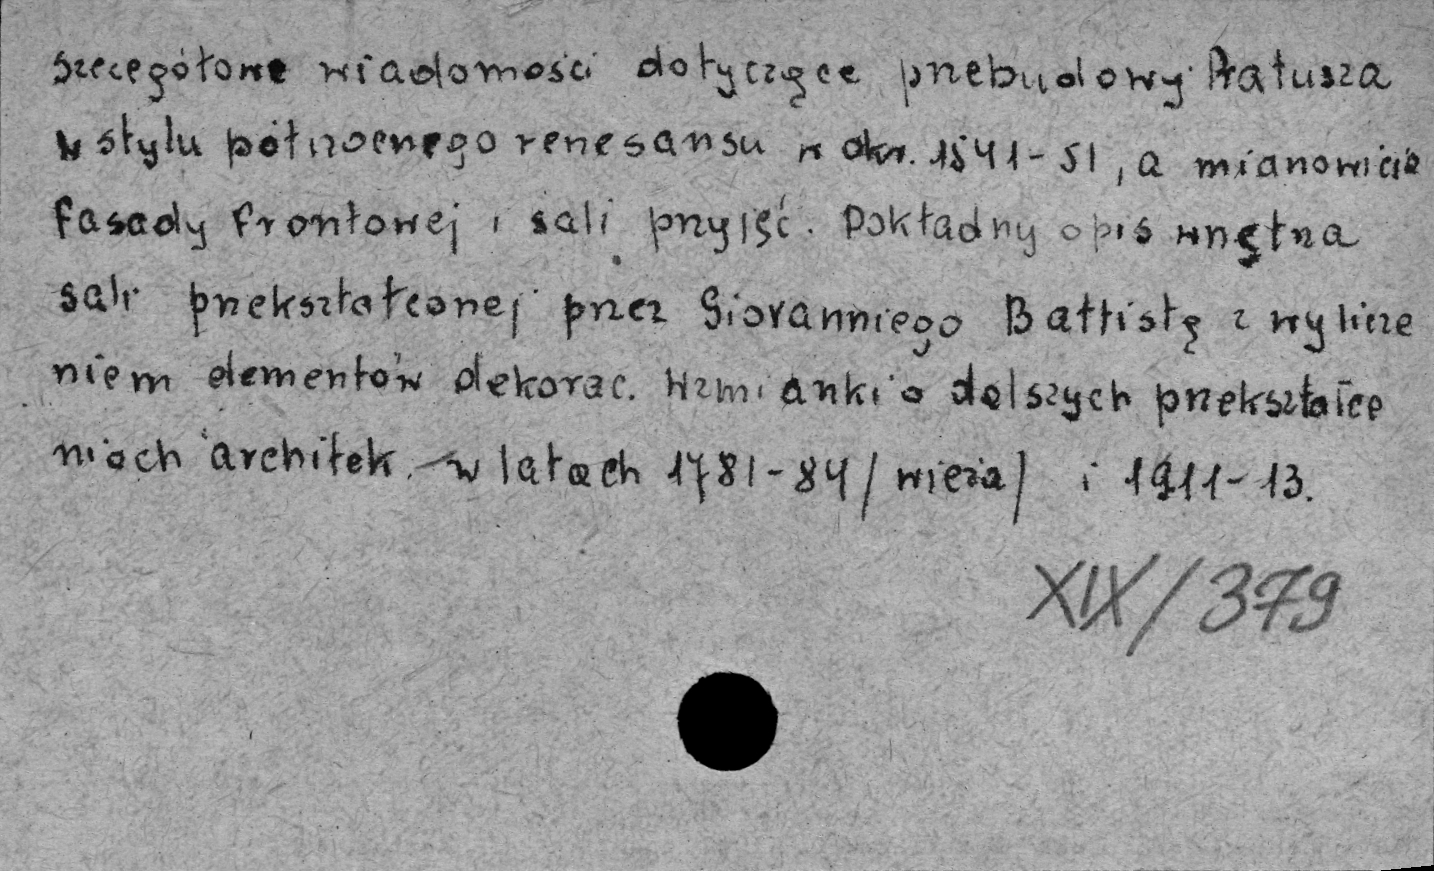 szczegółowe wiadomości dotyczące przebudowy Ratusza
w stylu północnego renesansu w okr. 1541-51, a mianowicie
fasady frontowej i sali przyjęć. Dokładny opis wnętrza
sali przekształconej przez Giovanniego Battistę z wylicze
niem elementów dekorac. Wzmianki o dalszych przekształce
niach architek. w latach 1781-84/wieża/ i 1911-13.
XIX/379